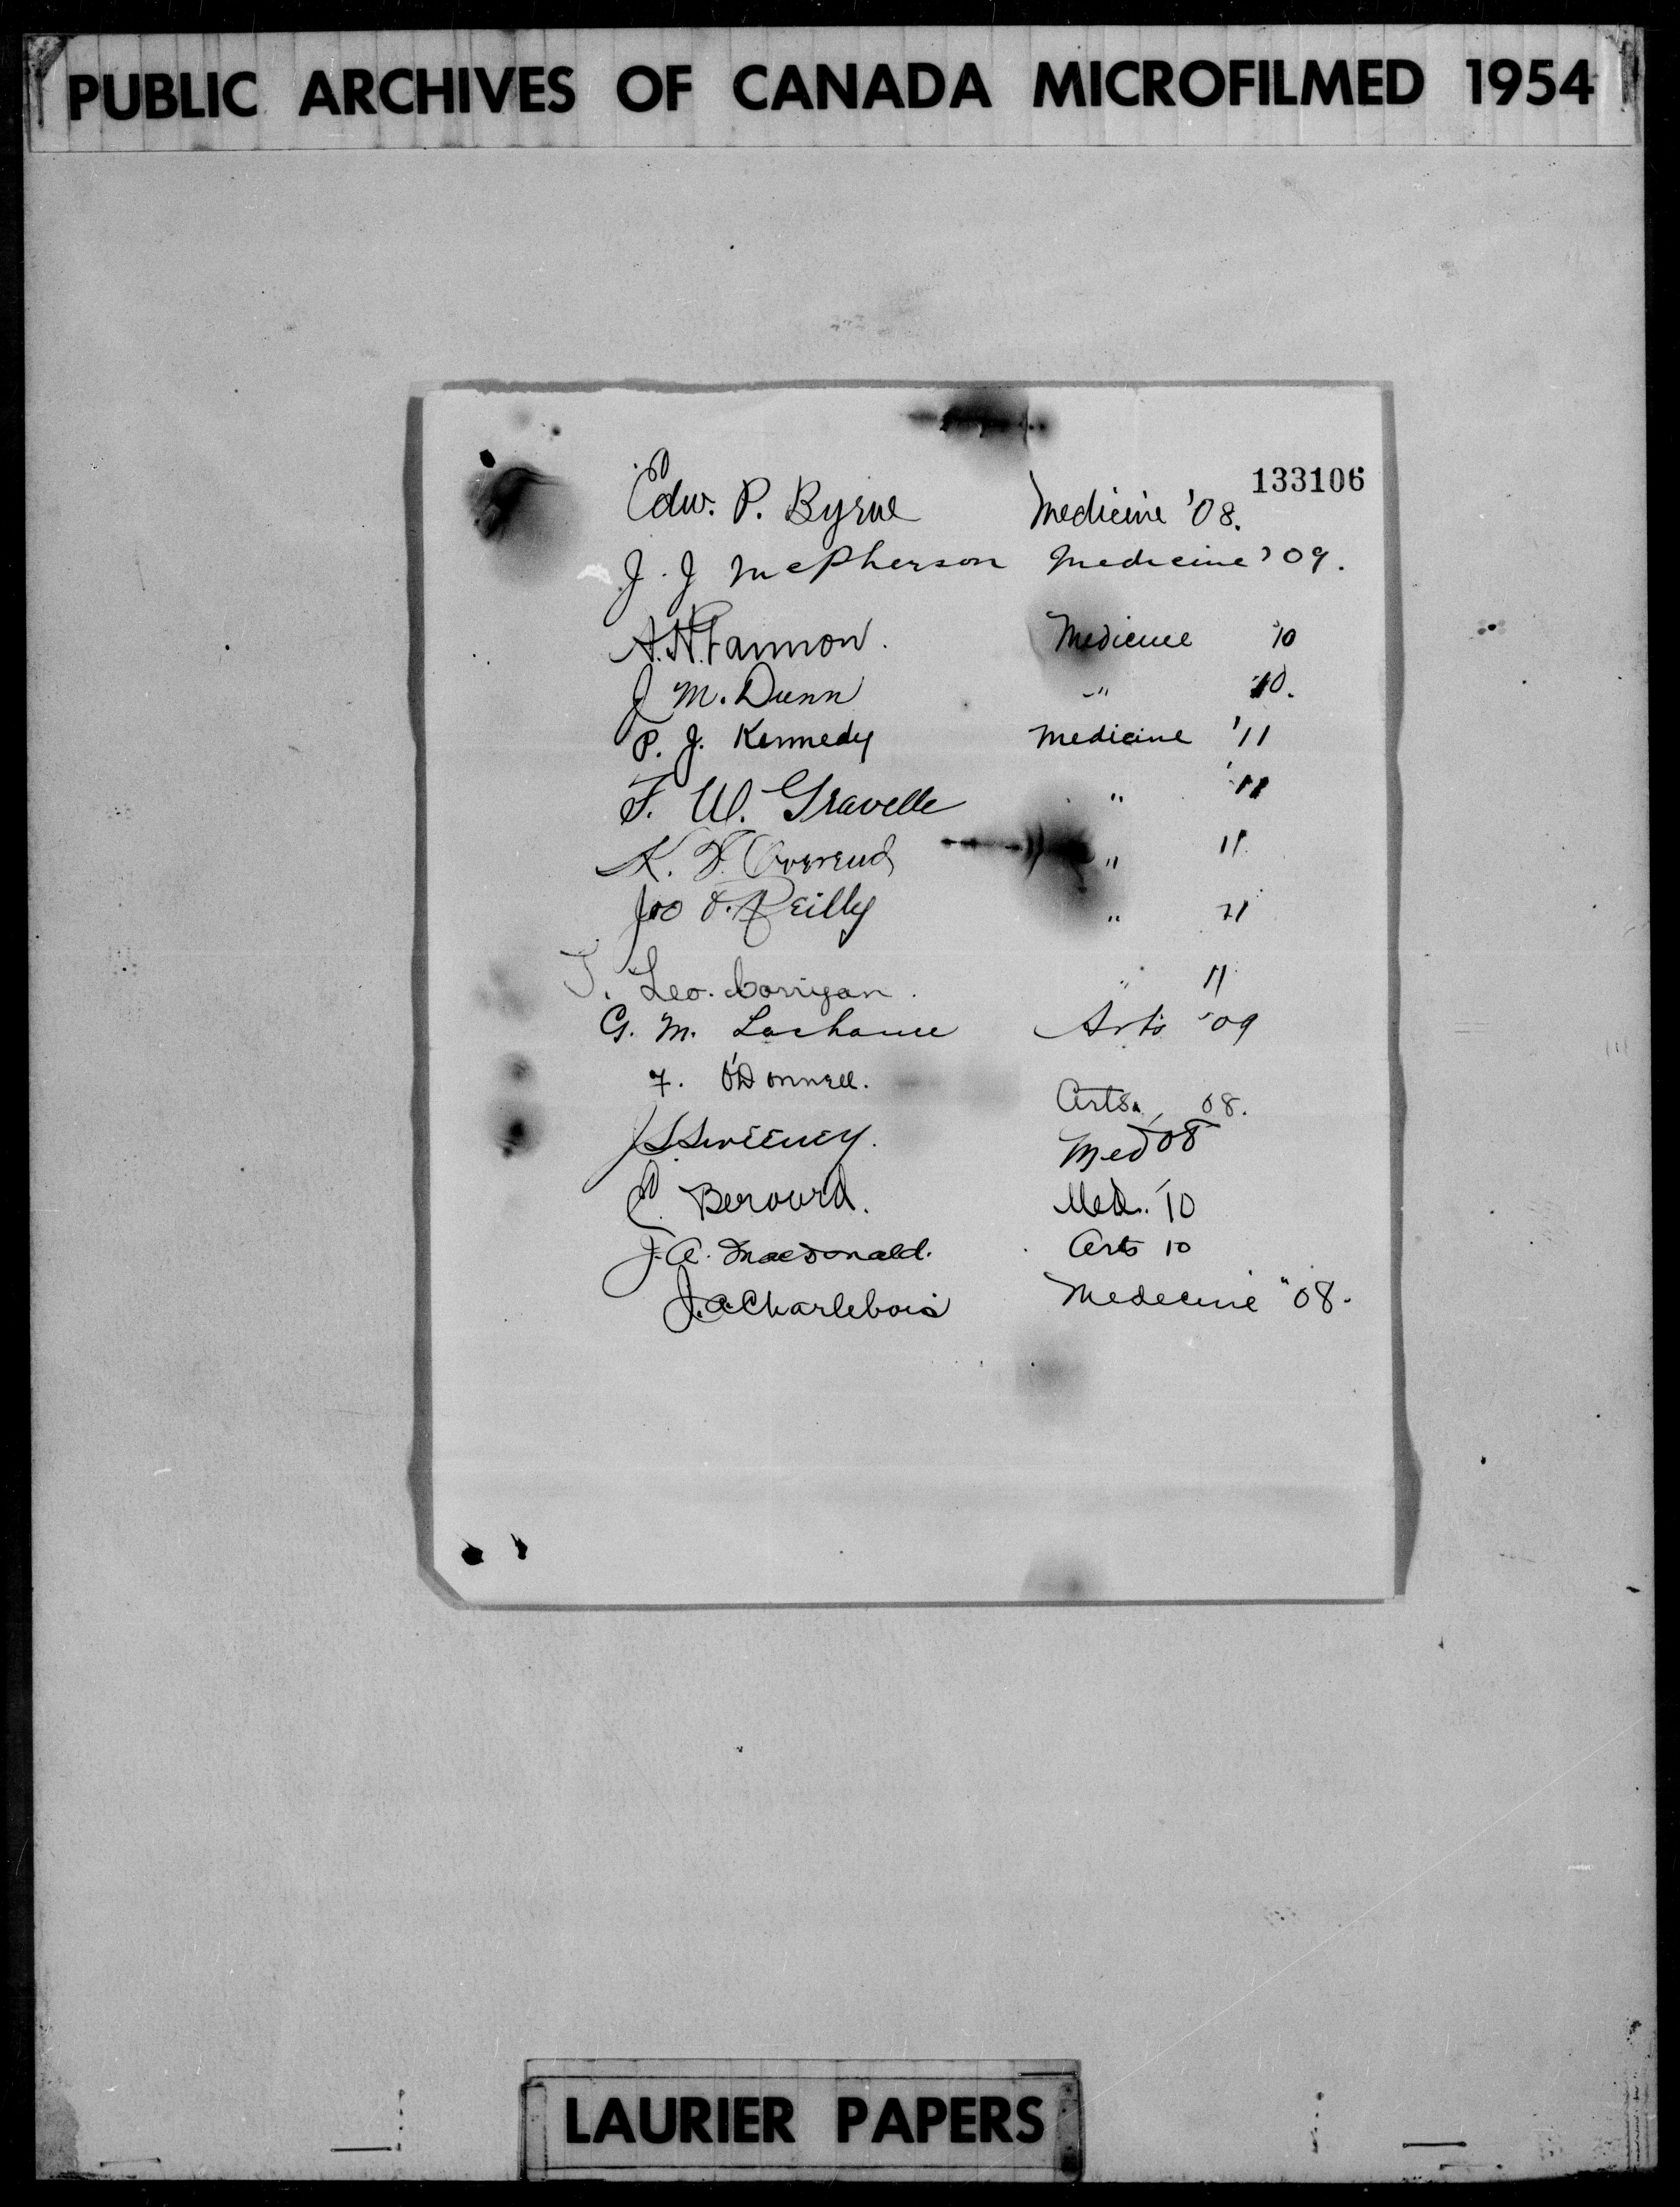 PUBLIC ARCHIVES OF CANADA MICROFILMED 1954
133106
Edw. P. Byrne Medicine '08.
J. J McPherson Medicine '09.
A. H. Fannon. Medicine '10
J M. Dunn " '10.
P. J. Kennedy Medicine '11
F. W. Gravelle " '11
K. F. Overend " 11
Jno F. Reilly " '11
T. Leo. Corrigan. " 11
G. M. Lachance Arts '09
F. O'Donnell. Arts. 08.
J. S. Sweeney. Med '08
E. Berourd. Med. '10
J. A. MacDonald. Arts 10
J. A. Charlebois Medecine "08.
LAURIER PAPERS